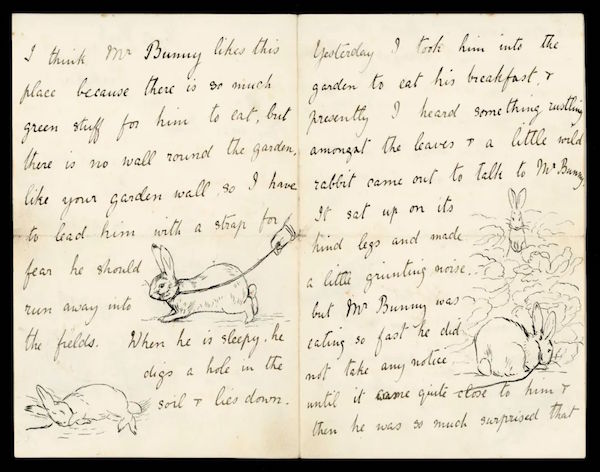 I think Mr Bunny likes this
place because there is so much
green stuff for him to eat, but
there is no wall round the garden,
like your garden wall, so I have
to lead him with a strap for
fear he should
run away into
the fields. When he is sleepy, he
digs a hole in the
soil & lies down.
Yesterday I took him into the
garden to eat his breakfast, &
presently I heard something rustling
amongst the leaves & a little wild
rabbit came out to talk to Mr Bunny.
It sat up on its
hind legs and made
a little grunting noise,
but Mr Bunny was
eating so fast he did
not take any notice
until it came quite close to him &
then he was so much surprised that